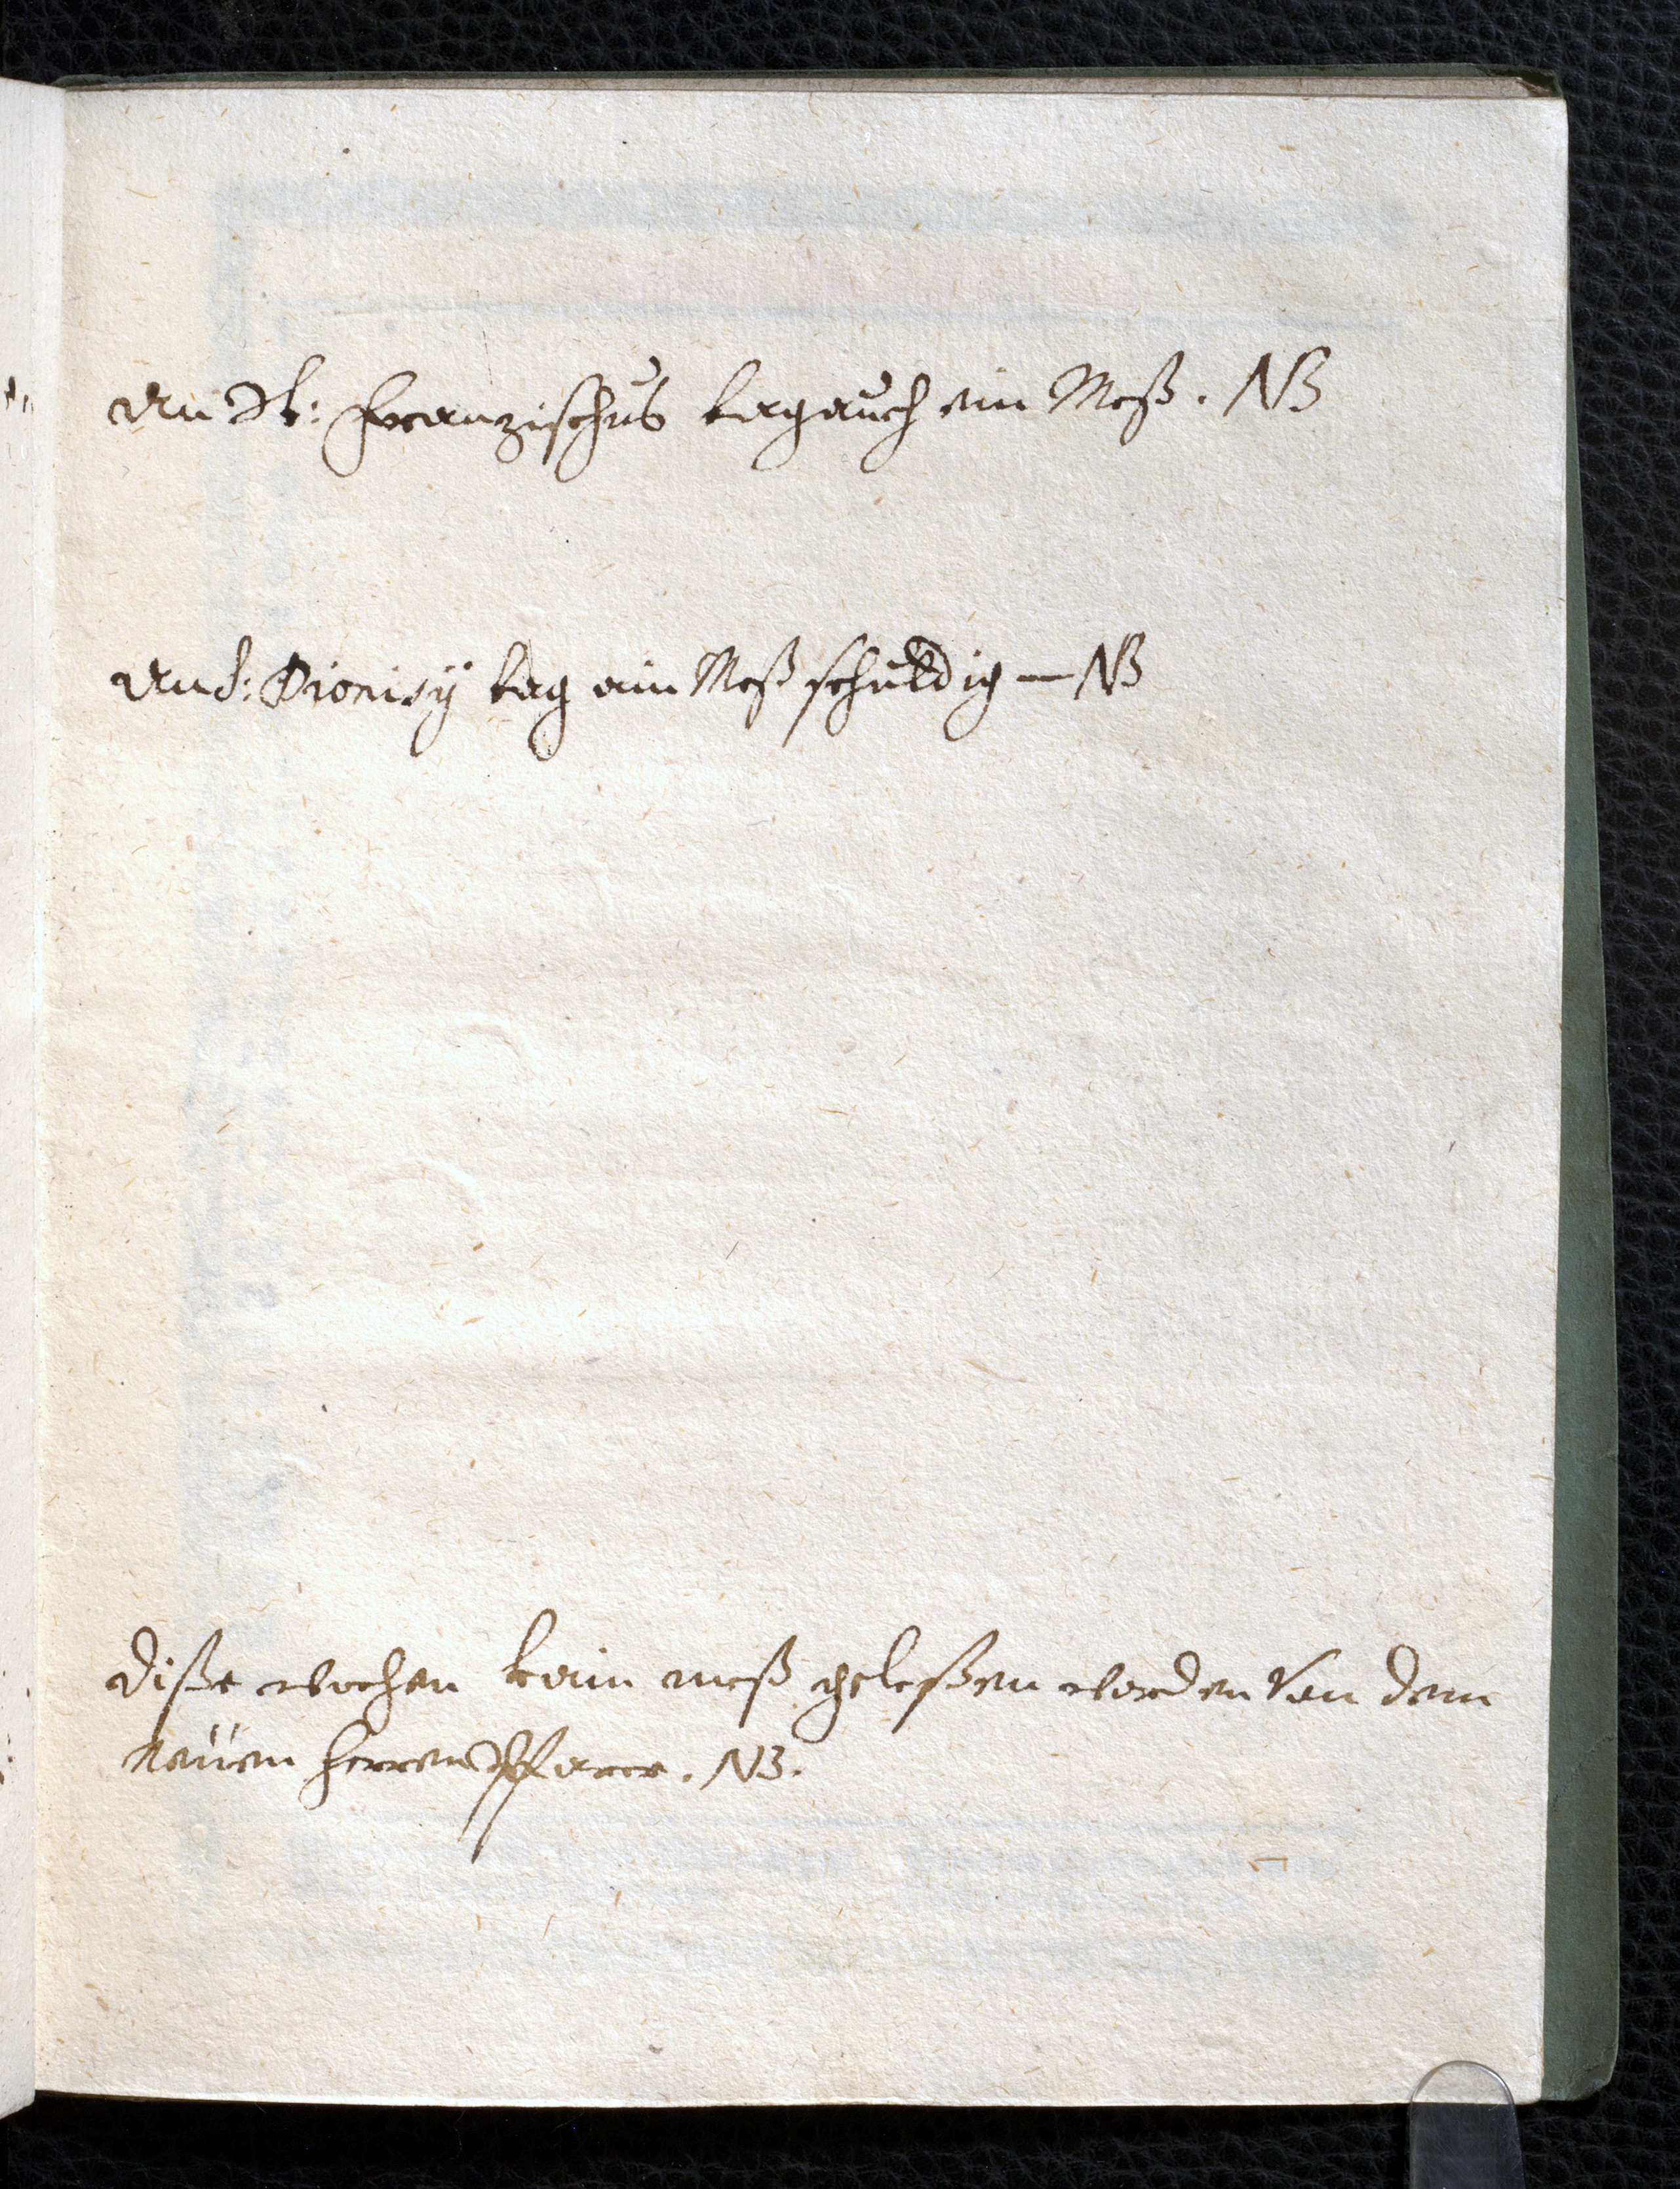 An St: Franzischus tag auch ein Meß. NB
An S: Dionisÿ tag ein Meß schuldig — NB
diße wochen kein meß geleßen worden Von dem
neüen herren Pfarer. NB.